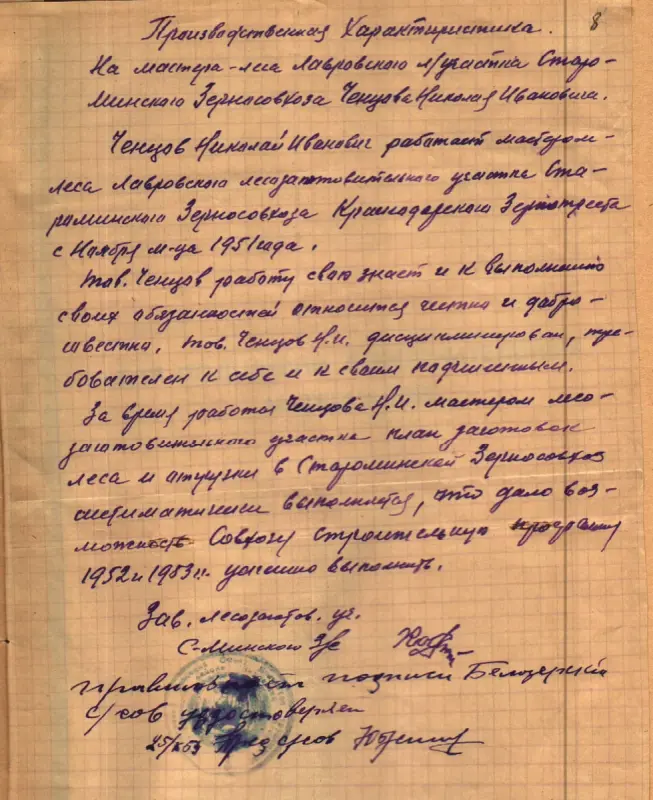 8
Производственная Характиристика.
На мастера-леса Лавровского л/участка Старо-
Минского Зерносовхоза Ченцова Николая Ивановича.
Ченцов Николай Иванович работает мастером-
леса Лавровского лесозаготовительного участка Ста-
роминского Зерносовхоза Краснодарского Зернотреста
с Ноября м-ца 1951 года.
Тов. Ченцов работу свою знает и к выполнению
своих обязанностей относится честно и добро-
совестно. Тов. Ченцов Н.И. дисциплинирован, тре-
бователен к себе и к своим подчиненным.
За время работы Ченцова Н.И. мастером лесо-
заготовительного участка план заготовок
леса и отгрузки в Староминской Зерносовхоз
систиматически выполняется, что дало воз-
можность Совхозу строительную программу
1952 и 1953 г.г. успешно выполнить.
Зав. лесозаготов. уч.
С-Минского
подписи Белозерский
с/сов удостоверяет
25/X 53 Пред с/сов